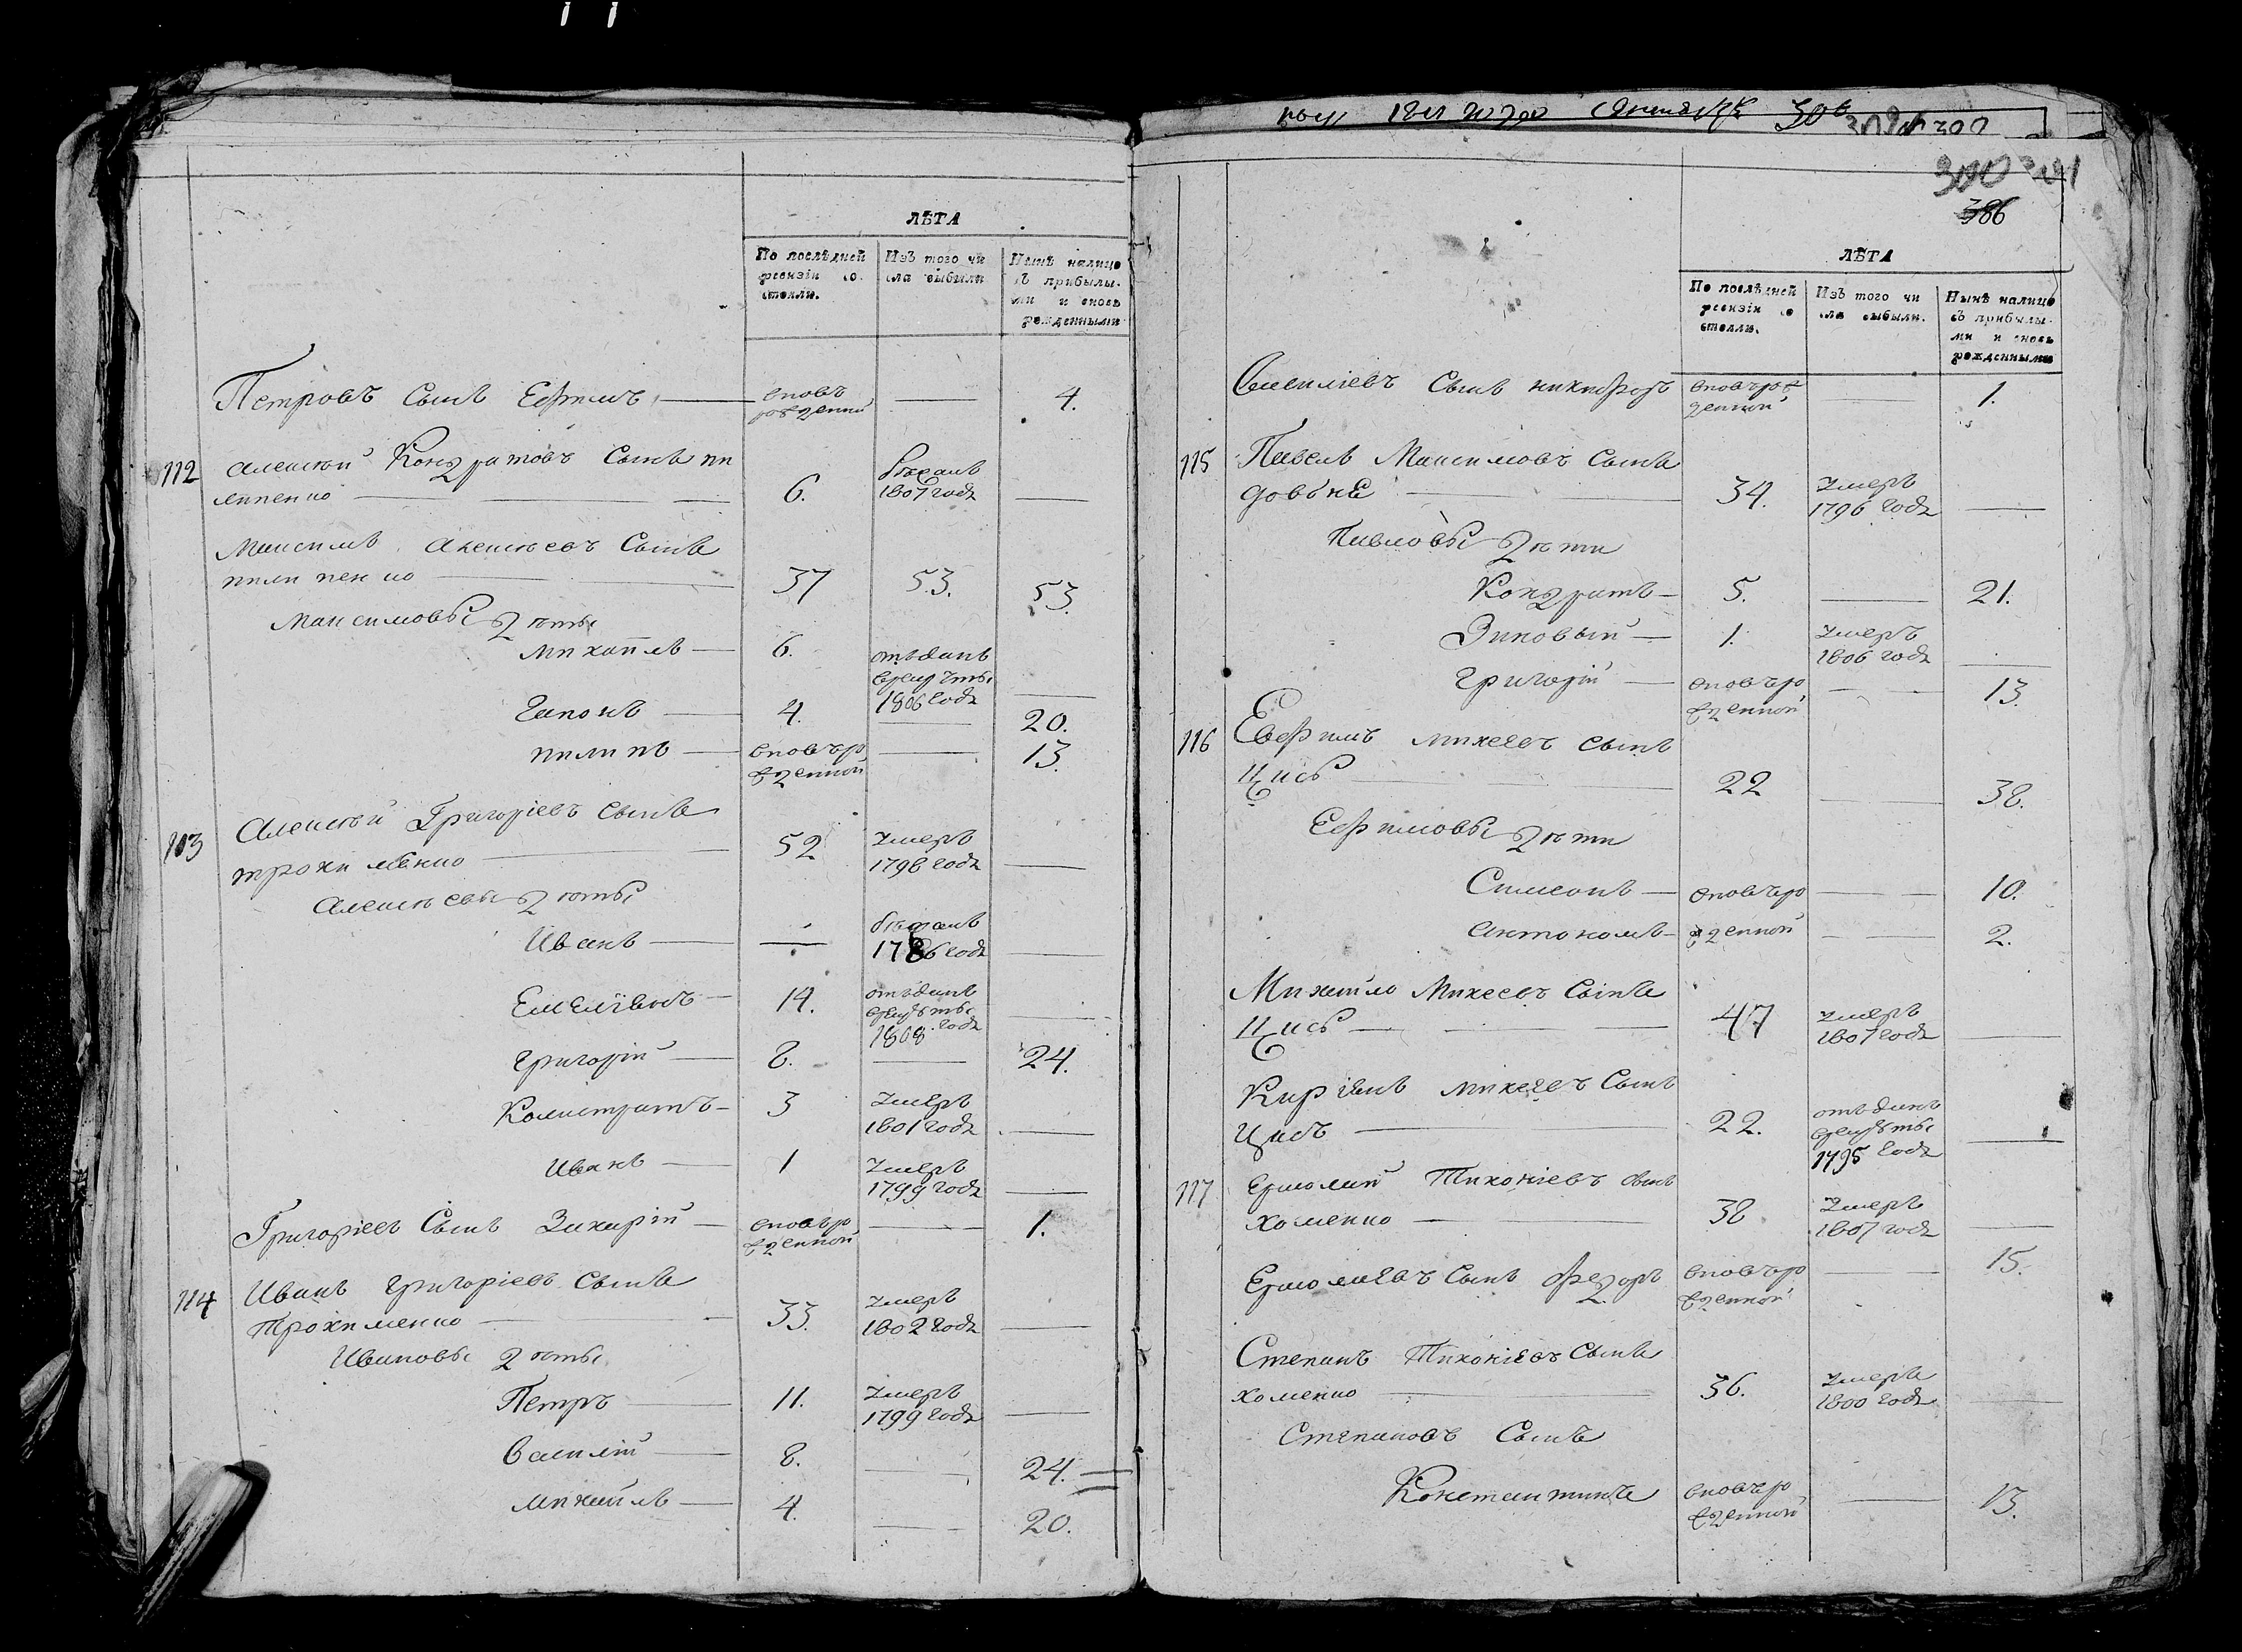 ЛѢТА
По послѣдней ревизіи состояли.
Изъ того числа выбыли
Нынѣ налицо съ прибылыми и вновь рожденными
Петровъ Сынъ Ефимъ — вновь рожденный — 4.
112 Алексѣй Кондратовъ Сынъ пи
липенко — 6. бѣжалъ 1807 года —
Максимъ Алексѣевъ Сынъ
пилипенко — 37 53. 53.
Максимовы дѣти
Михаилъ — 6. отъданъ врекруты 1806 года —
Гапонъ — 4. — 20.
пилипъ — вновьрожденной — 13.
113 Алексѣй Григоріевъ Сынъ
трохименко — 52 Умеръ 1798 года —
Алексѣевы дѣти
Иванъ — — бѣжалъ 1786 года —
Емеліянъ — 14. отъданъ врекруты 1808 года —
Григорій — 8. — 24.
Калистратъ — 3 Умеръ 1801 года —
Иванъ — 1 Умеръ 1799 года —
Григоріевъ Сынъ Захарій — вновьрожденной — 1.
114 Иванъ Григоріевъ Сынъ
Трохименко — 33. Умеръ 1802 года —
Ивановы дѣти
Петръ — 11. Умеръ 1799 года —
Василій — 8. — 24.
Михаилъ — 4. — 20.
1811 года Сентября 30
386
ЛѢТА
По послѣдней ревизіи состояли.
Изъ того числа выбыли.
Нынѣ налицо съ прибылыми и вновь рожденными
Василіевъ Сынъ никифоръ вновьрожденной — 1.
115 Павелъ Максимовъ Сынъ
довбнѣ — 34. Умеръ 1796 года —
Павловы дѣти
Кондратъ — 5. — 21.
Зиновій — 1. Умеръ 1806 года —
Григорій — вновьрожденной — 13.
116 Евфимъ михеевъ Сынъ
Цисъ — 22 — 38.
Ефимовы дѣти
Симеонъ — вновьро — 10.
Антономъ — жденной — 2.
Михайло Михеевъ Сынъ
Цисъ — 47 умеръ 1807 года —
Киріанъ михеевъ Сынъ
Цисъ — 22. отъданъ врекруты 1795 года —
117 Ермолай Тихоніевъ Сынъ
хоменко — 38 Умеръ 1807 года —
Ермолаевъ Сынъ Федоръ вновьрожденной — 15.
Степанъ Тихоніевъ Сынъ
хоменко — 36. Умеръ 1800 года —
Степановъ Сынъ
Константинъ вновьрожденной — 13.